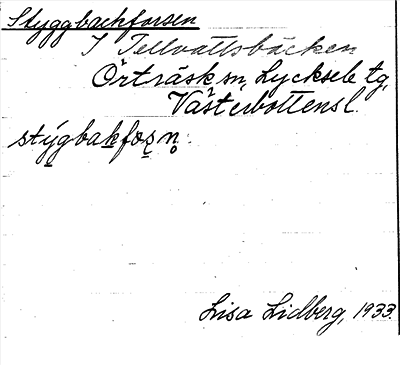 Styggbackforsen
I Tellvattsbäcken
Örträsk sn, Lycksele tg,
Västerbottens l.
stýgbakfo̱s̱n̥.
Lisa Lidberg, 1933.